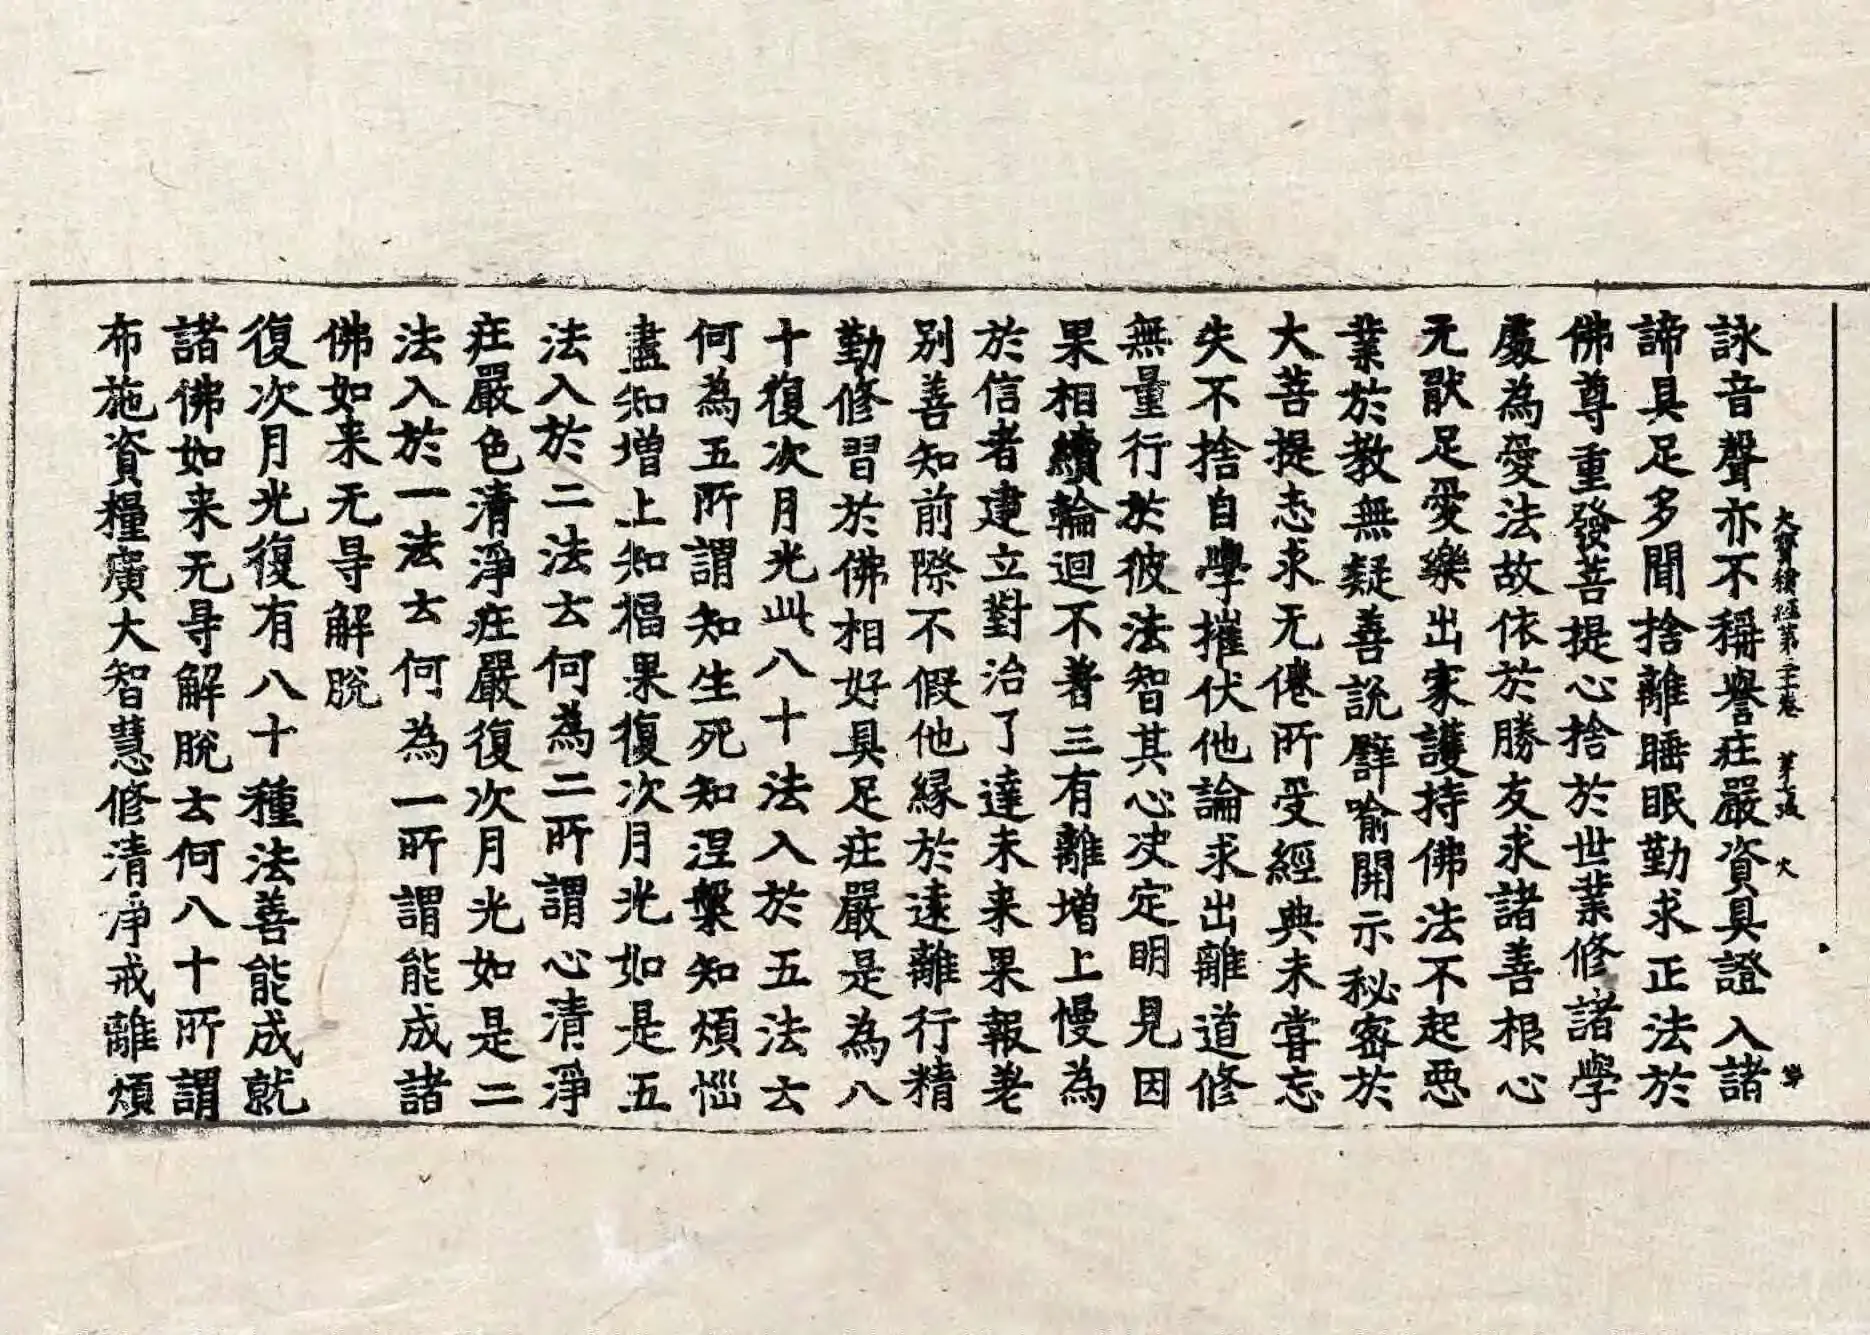 大寶積經第三十卷 第七張 火
詠音聲亦不稱譽庄嚴資具證入諸
諦具足多聞捨離睡眠勤求正法於
佛尊重發菩提心捨於世業修諸學
處為愛法故依於勝友求諸善根心
无猒足愛樂出家護持佛法不起惡
業於教無疑善說譬喻開示秘密於
大菩提志求无倦所受經典未甞忘
失不捨自學摧伏他論求出離道修
無量行於彼法智其心决定明見因
果相續輪迴不著三有離增上慢為
於信者建立對治了達未来果報差
別善知前際不假他緣於遠離行精
勤修習於佛相好具足庄嚴是為八
十復次月光此八十法入於五法去
何為五所謂知生死知涅槃知煩惱
盡知增上知福果復次月光如是五
法入於二法去何為二所謂心清淨
庄嚴色清淨庄嚴復次月光如是二
法入於一法去何為一所謂能成諸
佛如来无㝵解脫
復次月光復有八十種法善能成就
諸佛如来无㝵解脫去何八十所謂
布施資糧廣大智慧修清淨戒離煩